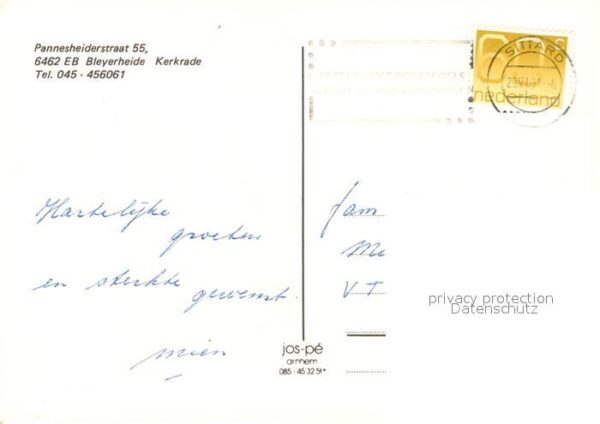 Pannesheiderstraat 55,
6462 EB Bleyerheide Kerkrade
Tel. 045 - 456061
SITTARD
60 c
nederland
Hartelijke
groeten
en sterkte
gewenst.
mien
fam
Me
V T
privacy protection
Datenschutz
jos-pé
arnhem